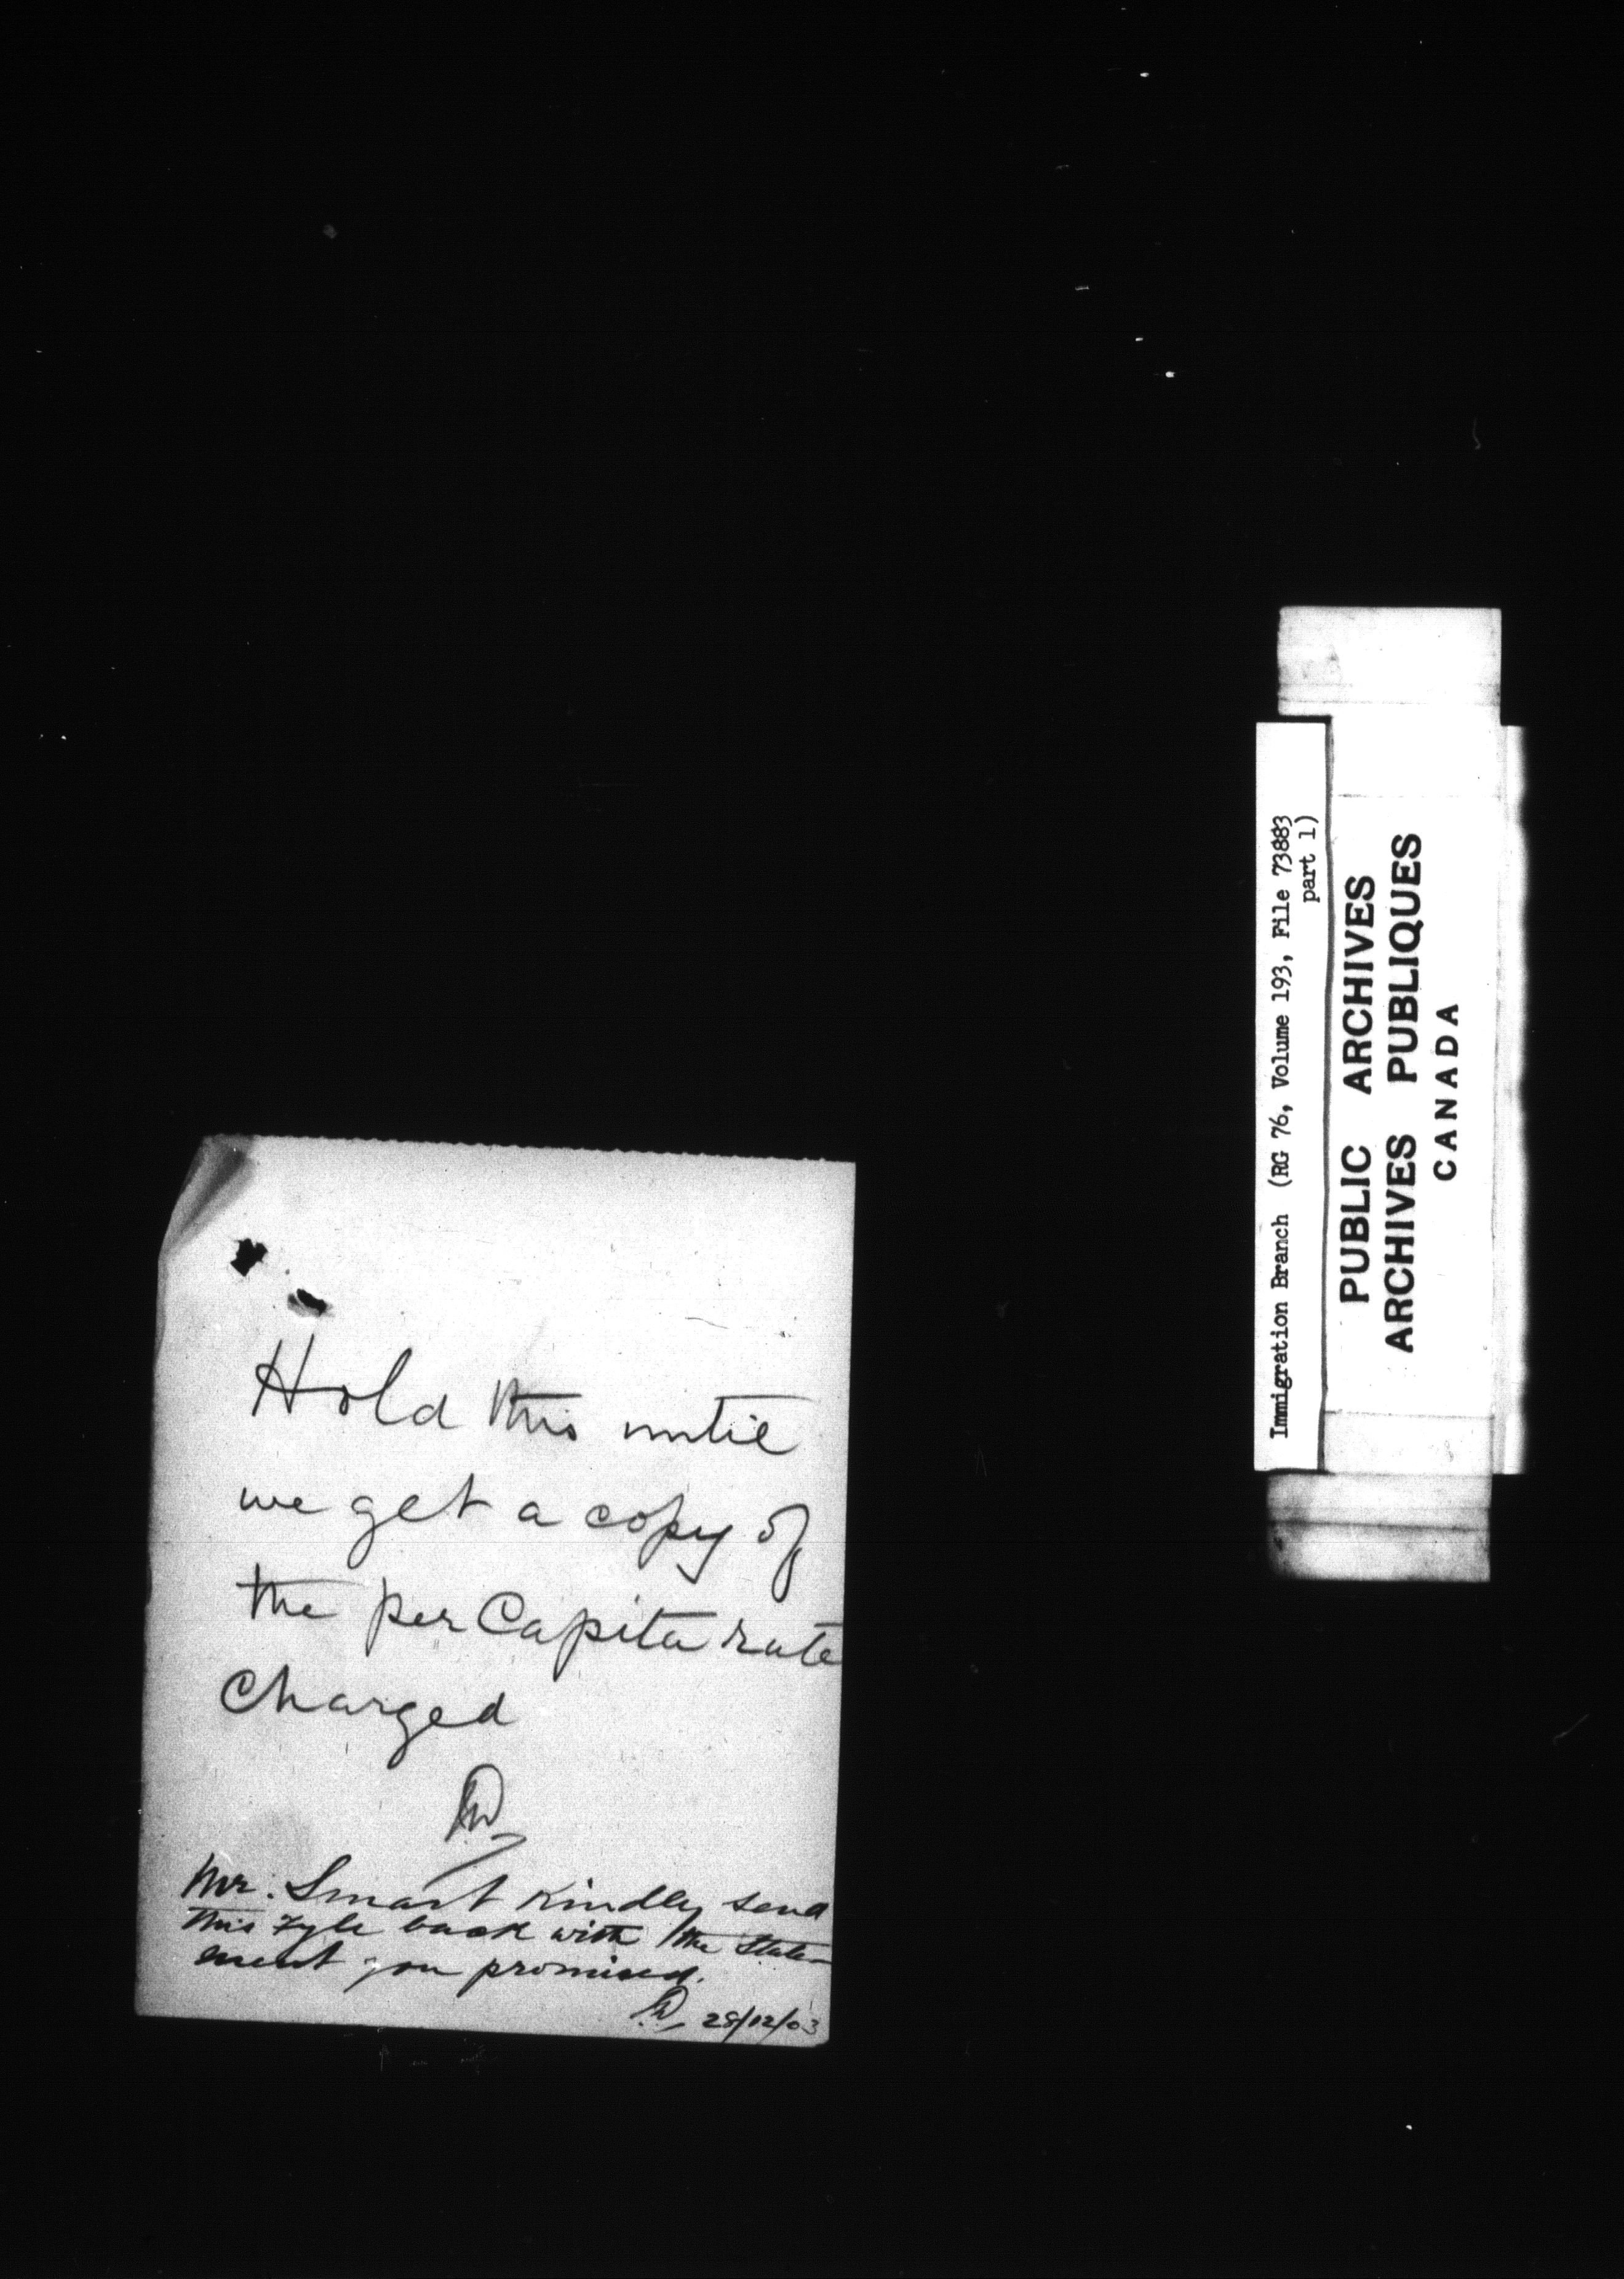 Hold this until
we get a copy of
the per Capita rate
charged
Mr. Smart Kindly send
this fyle back with the state-
ment you promised.
28/12/03
Immigration Branch (RG 76, Volume 193, File 73883
part 1)
PUBLIC ARCHIVES
ARCHIVES PUBLIQUES
CANADA